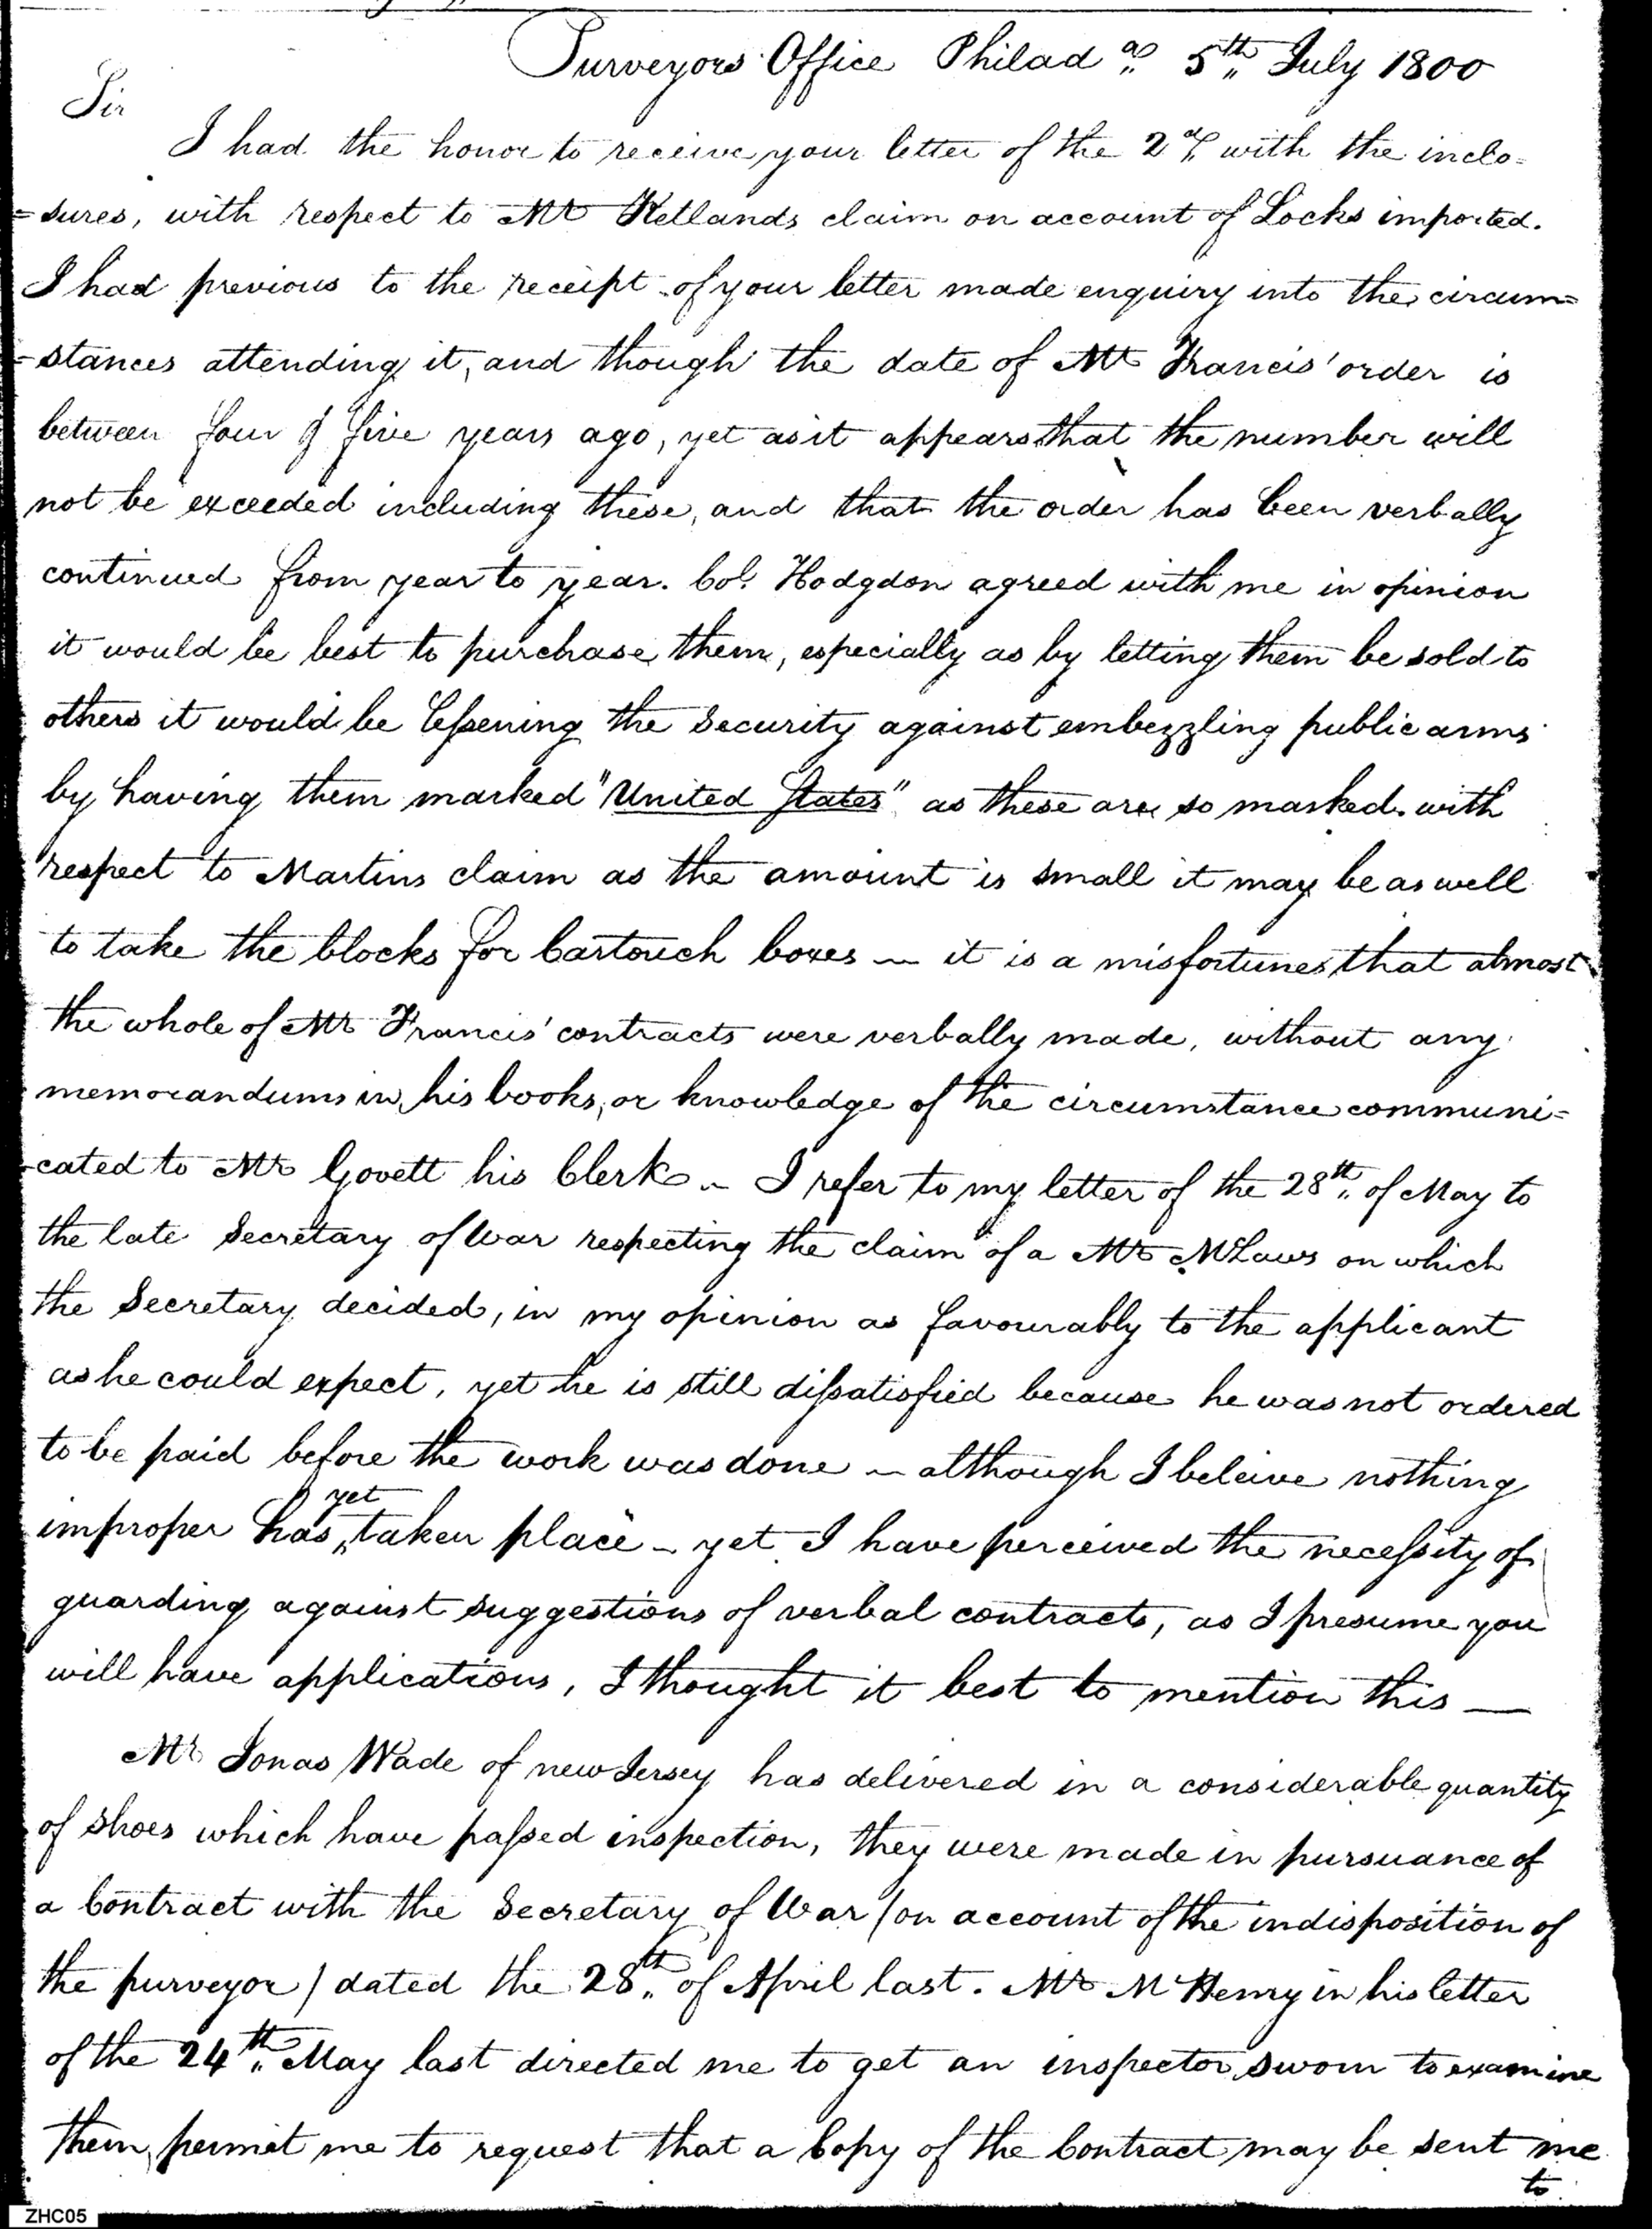 Purveyors Office Philad.a 5th July 1800
Sir
I had the honor to receive your letter of the 2d with the inclo=
=sures, with respect to Mr Ketlands claim on account of Locks imported.
I had previous to the receipt of your letter made enquiry into the circum=
=stances attending it, and though the date of Mr Francis' order is
between four & five years ago, yet as it appears that the number will
not be exceeded including these, and that the order has been verbally
continued from year to year. Col. Hodgdon agreed with me in opinion
it would be best to purchase them, especially as by letting them be sold to
others it would be lessening the security against embezzling public arms
by having them marked "United States" as these are so marked. with
respect to Martins claim as the amount is small it may be as well
to take the blocks for Cartouch boxes — it is a misfortune that almost
the whole of Mr Francis' contracts were verbally made, without any
memorandums in his books, or knowledge of the circumstance communi=
-cated to Mr Govett his Clerk — I refer to my letter of the 28th of May to
the late Secretary of War respecting the claim of a Mr McLaws on which
the Secretary decided, in my opinion as favourably to the applicant
as he could expect, yet he is still dissatisfied because he was not ordered
to be paid before the work was done — although I beleive nothing
yet
improper has taken place — yet I have perceived the necessity of
guarding against suggestions of verbal contracts, as I presume you
will have applications, I thought it best to mention this —
Mr Jonas Wade of new Jersey has delivered in a considerable quantity
of shoes which have passed inspection, they were made in pursuance of
a Contract with the Secretary of War /on account of the indisposition of
the purveyor/ dated the 28th of April last. Mr McHenry in his letter
of the 24th May last directed me to get an inspector sworn to examine
them, permit me to request that a Copy of the Contract may be sent me
to
ZHC05